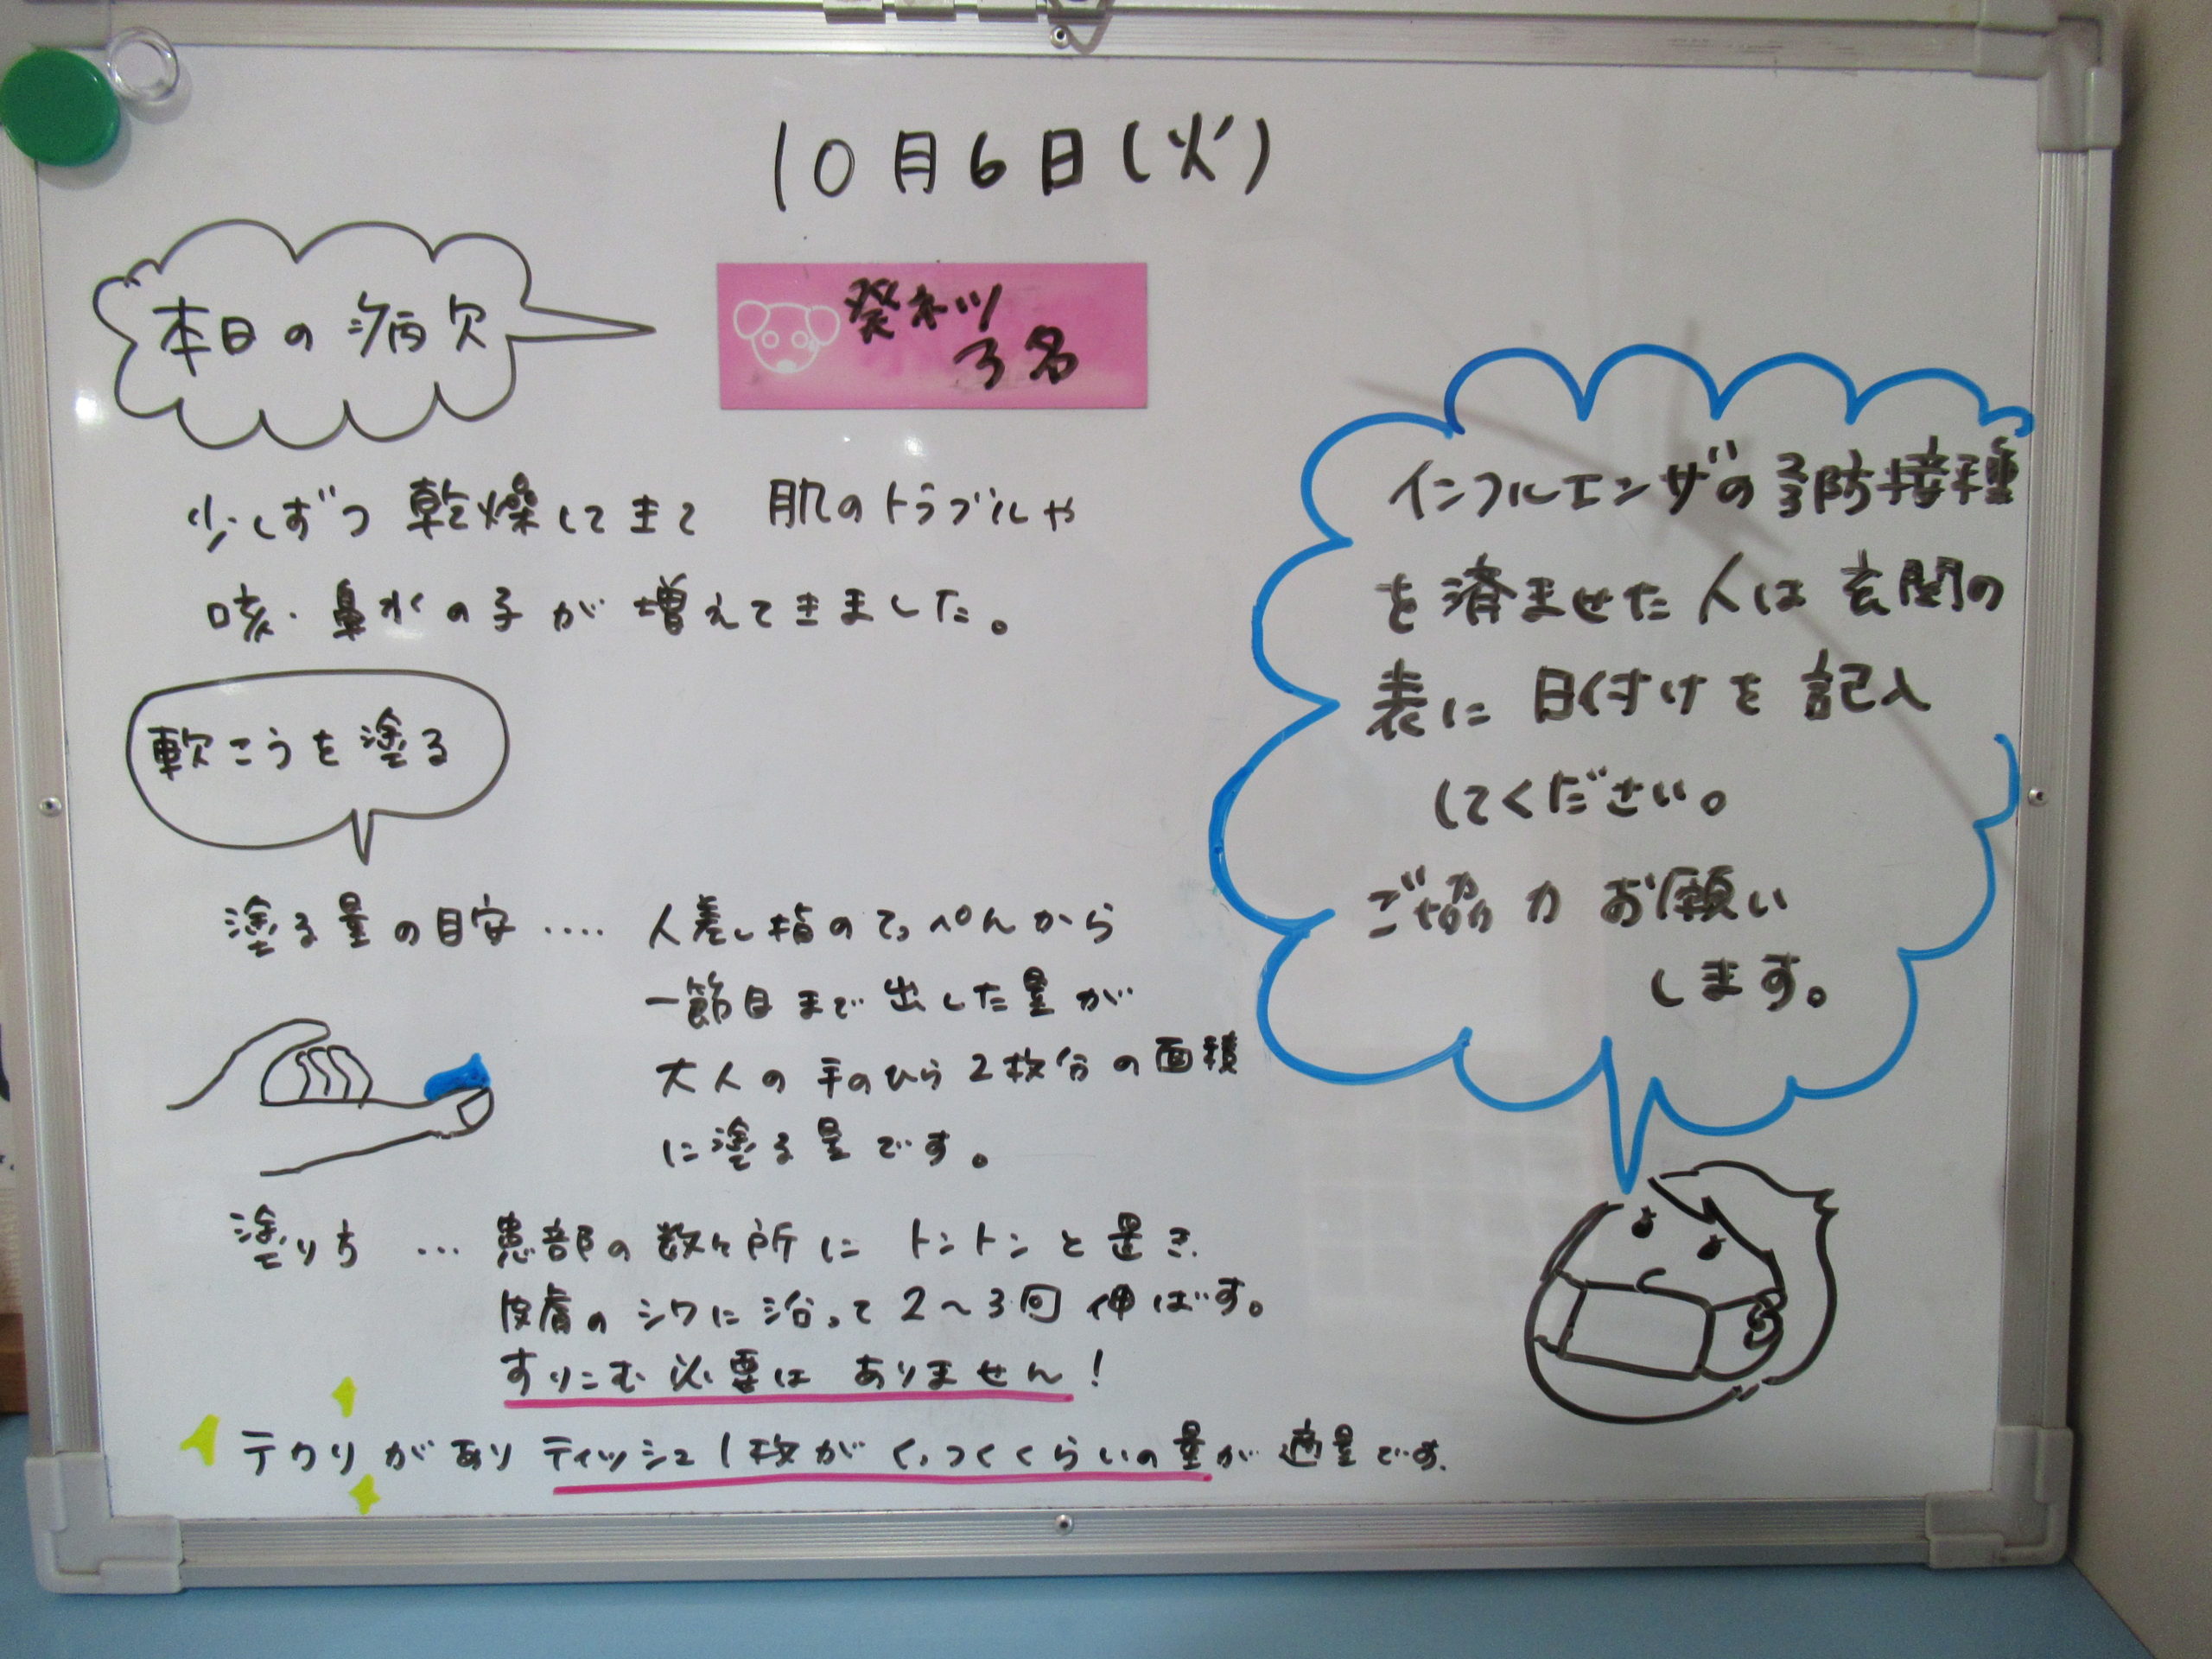 10月6日(火)
本日の病欠
発ネツ
3名
少しずつ乾燥してきて 肌のトラブルや
咳・鼻水の子が増えてきました。
軟こうを塗る
塗る量の目安‥‥人差し指のてっぺんから
一節目まで出した量が
大人の手のひら2枚分の面積
に塗る量です。
塗り方 …患部の数ヶ所にトントンと置き、
皮膚のシワに沿って2〜3回伸ばす。
すりこむ必要はありません!
テカリがありティッシュ1枚がくっつくくらいの量が適量です。
インフルエンザの予防接種
を済ませた人は玄関の
表に日付けを記入
してください。
ご協力お願い
します。